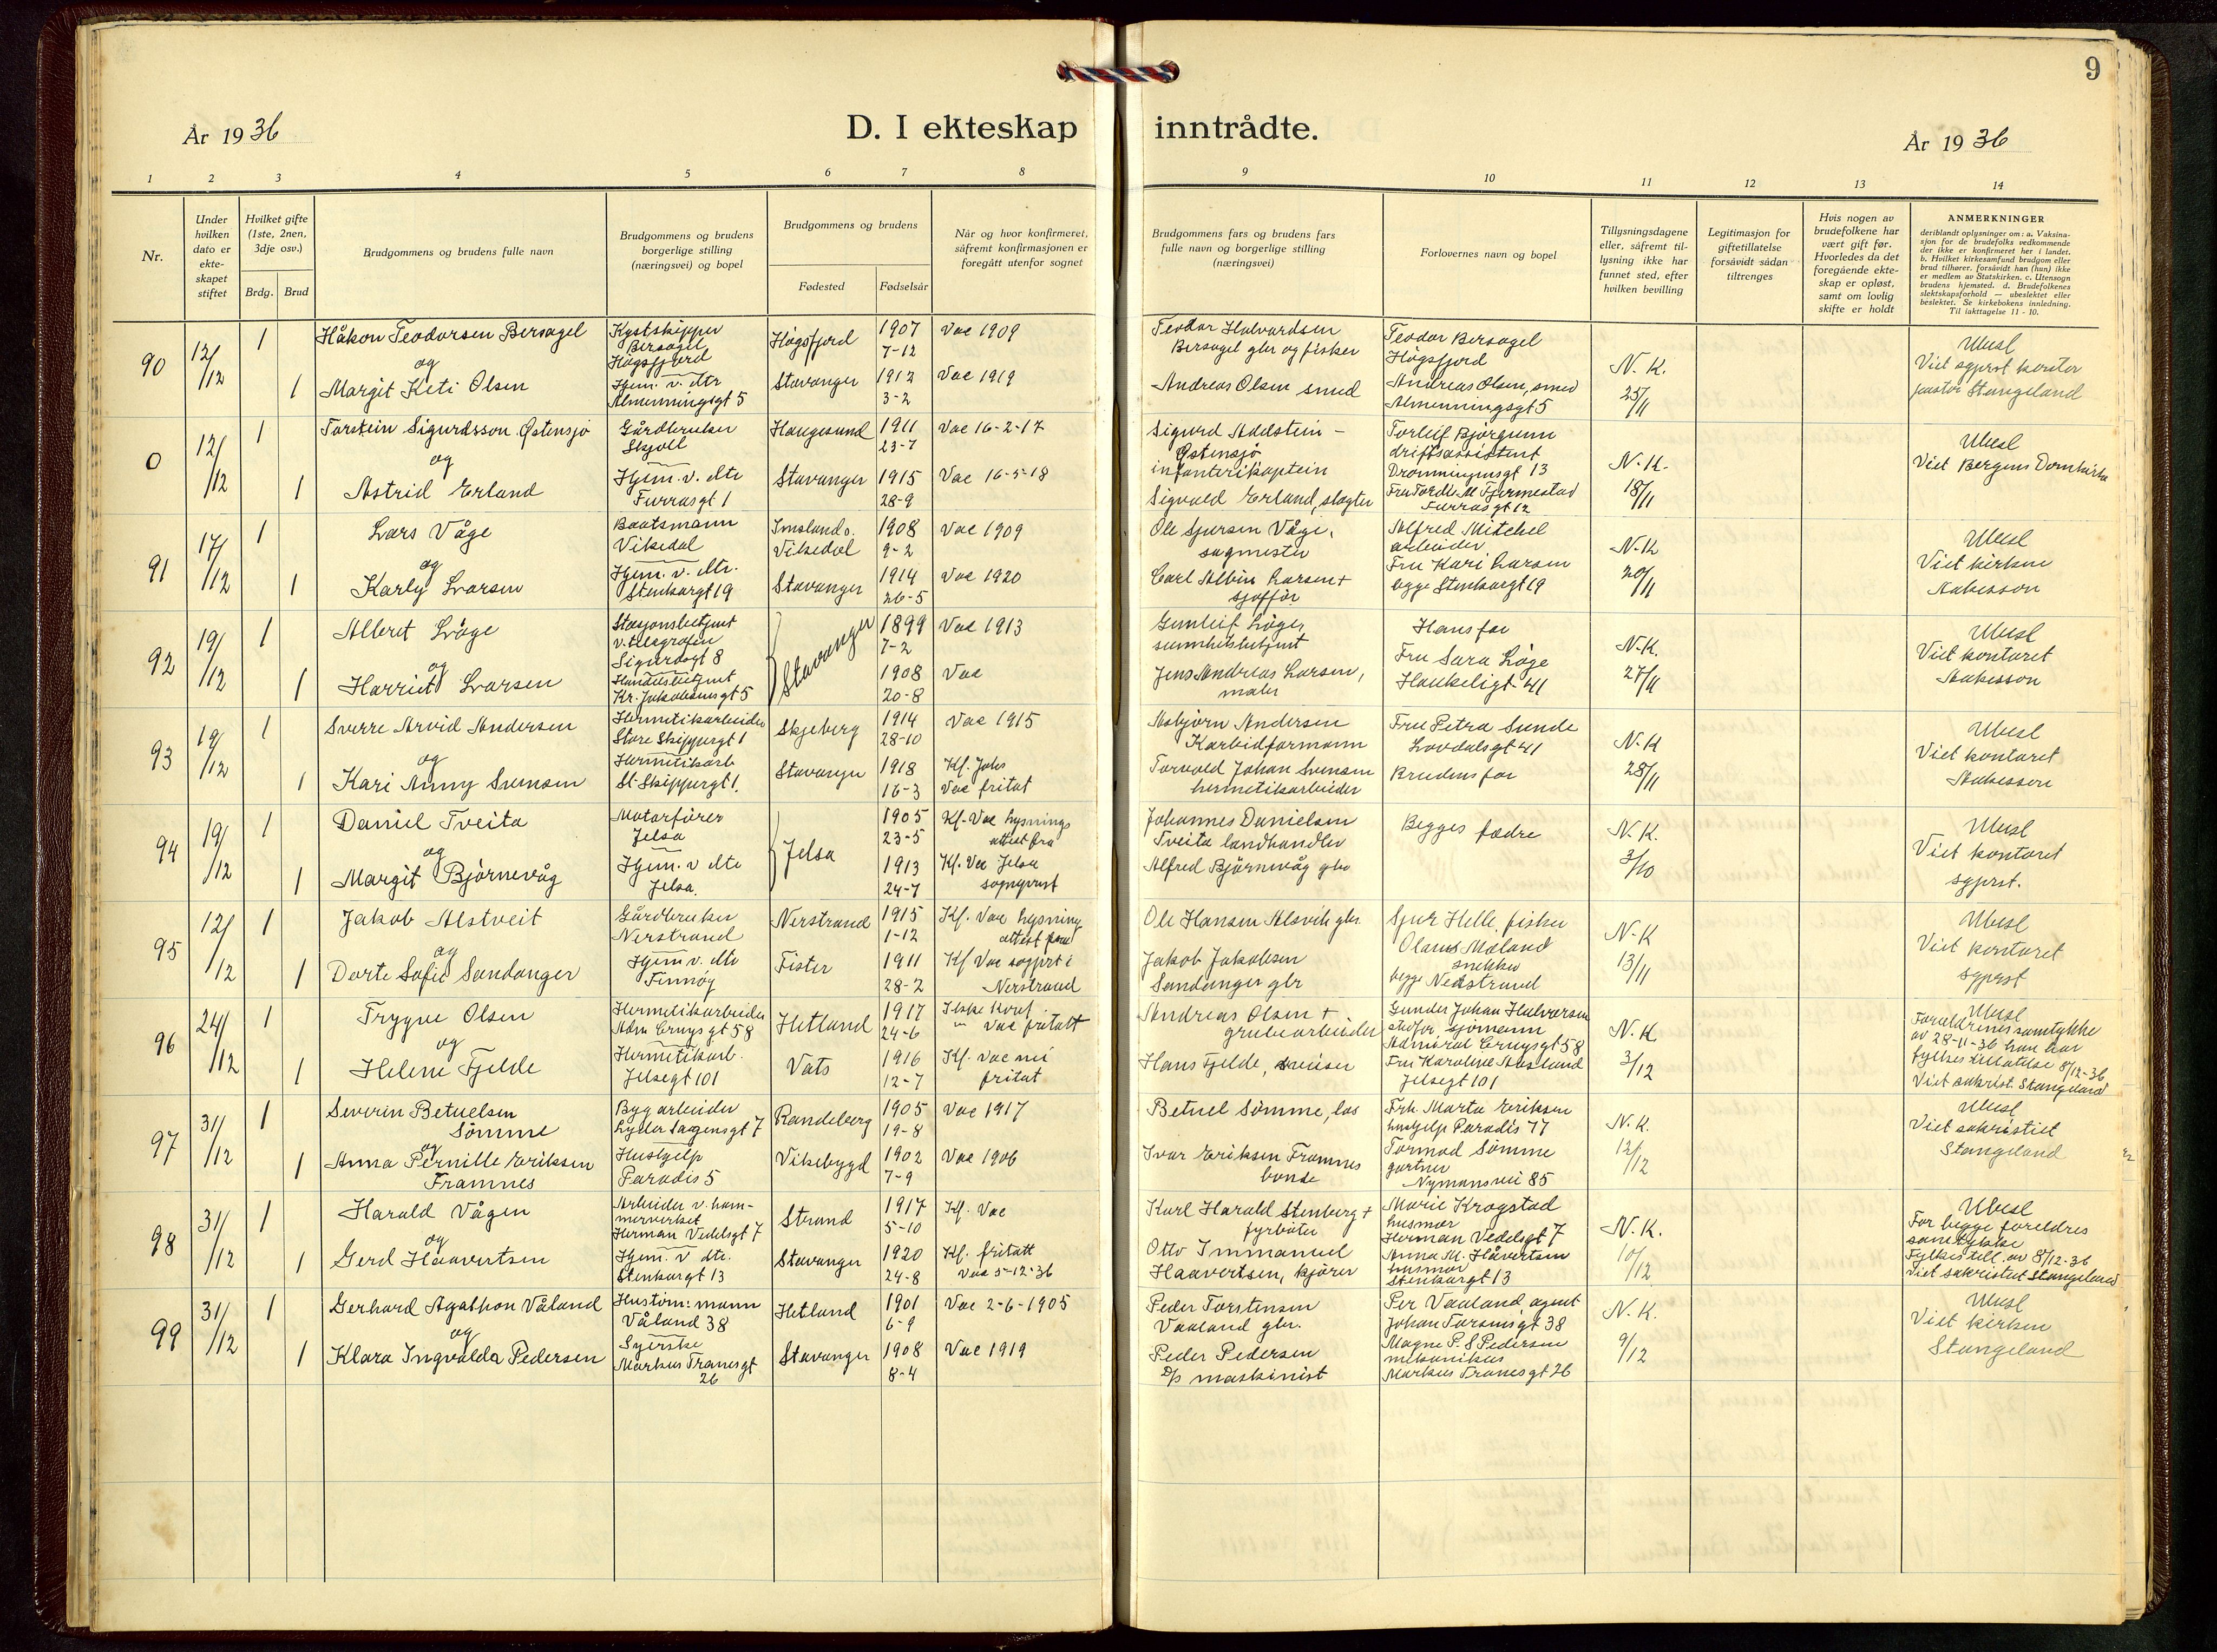 9
År 1936
D. I ekteskap inntrådte.
År 1936
1 2 3 4 5 6 7 8 9 10 11 12 13 14
Nr.
Under hvilken dato er ekte- skapet stiftet
Hvilket gifte (1ste, 2nen, 3dje osv.)
Brdg. Brud
Brudgommens og brudens fulle navn
Brudgommens og brudens borgerlige stilling (næringsvei) og bopel
Brudgommens og brudens
Fødested Fødselsår
Når og hvor konfirmeret, såfremt konfirmasjonen er foregått utenfor sognet
Brudgommens fars og brudens fars fulle navn og borgerlige stilling (næringsvei)
Forlovernes navn og bopel
Tillysningsdagene eller, såfremt til- lysning ikke har funnet sted, efter hvilken bevilling
Legitimasjon for giftetillatelse forsåvidt sådan tiltrenges
Hvis nogen av brudefolkene har vært gift før. Hvorledes da det foregående ekte- skap er opløst, samt om lovlig skifte er holdt
ANMERKNINGER
deriblandt oplysninger om: a. Vaksina- sjon for de brudefolks vedkommende der ikke er konfirmeret her i landet. b. Hvilket kirkesamfund brudgom eller brud tilhører, forsåvidt han (hun) ikke er medlem av Statskirken. c. Utensogn brudens hjemsted. d. Brudefolkenes slektskapsforhold — ubeslektet eller beslektet. Se kirkebokens innledning. Til iakttagelse 11 - 10.
90 12/12 1 Håkon Teodorsen Bersagel Kystskipper Bersagel Høgsfjord Høgsfjord 1907 7-12 Vac 1909 Teodor Halvardsen Bersagel gbr og fisker Teodor Bersagel Høgsfjord N.K. 25/11 Ubesl Viet sgprst kontor pastor Stangeland
og
1 Margit Keti Olsen Hjem. v. dtr Almenningsgt 5 Stavanger 1912 3-2 Vac 1919 Andreas Olsen smed Andreas Olsen, smed Almenningsgt 5
0 12/12 1 Torstein Sigurdsson Østensjø Gårdbruker Skjoll Haugesund 1911 23-7 Vac 16-2-17 Sigurd Adelstein - Østensjø infanterikaptein Torleif Bjørgum driftsassistent Dronningensgt 13 N.K. 18/11 Ubesl Viet Bergens Domkirke
og
1 Astrid Erland Hjem. v. dtr Furrasgt 1 Stavanger 1915 28-9 Vac 16-5-18 Sigvald Erland, slagter Furrasgt 12
91 17/12 1 Lars Våge Baatsmann Vikedal Imslands. Vikedal 1908 9-2 Vac 1909 Ole Sjursen Våge, sagmester Alfred Mitchel arbeider N.K 20/11 Ubesl Viet kirken Aakesson
og
1 Karly Larsen Hjem. v. dtr. Stenkargt 19 Stavanger 1914 26-5 Vac 1920 Carl Albin Larsen + sjoffør Fru Kari Larsen begge Stenkargt 19
92 19/12 1 Albert Låge Stasjonsbetjent v. telegrafen Sigurdsgt 8 Stavanger 1899 7-2 Vac 1913 Gunleif Låge, sunnhetsbetjent Hans far N.K. 27/11 Ubesl Viet kontoret Aakesson
og
1 Harriet Larsen Handelsbetjent Kr. Jakobsensgt 5 1908 20-8 Vac Jens Andreas Larsen, maler Fru Sara Låge Haukeligt- 41
93 19/12 1 Sverre Arvid Andersen Hermetikarbeider Store Skippergt 1 Skjeberg 1914 28-10 Vac 1915 Asbjørn Andersen Karbidformann Fru Petra Sunde Lovdalsgt 41 N.K 28/11 Ubesl Viet kontoret Aakesson
og
1 Kari Anny Svensen Hermetikarb St. Skippergt 1. Stavanger 1918 16-3 Kf. Johs Vac fritat Torvald Johan Svensen hermetikarbeider Brudens far
94 19/12 1 Daniel Tveita Motorfører Jelsa Jelsa 1905 23-5 Kf. Vac lysnings attest fra Johannes Danielsen Tveita landhandler Begges fædre N.K. 3/10 Ubesl Viet kontoret sgprst.
og
1 Margit Bjørnevåg Hjem. v dtr Jelsa. 1913 24-7 Kf. Vac Jelsa sogneprest Alfred Bjørnevåg gbr
95 12/12 1 Jakob Alstveit Gårdbruker Nerstrand Nerstrand 1915 1-12 Kf. Vac lysning attest fra Ole Hansen Alsvik gbr. Sjur Helle, fisker N.K 13/11 Ubesl Viet kontoret sgprst
og
1 Dorte Sofie Sandanger Hjem v. dtr Finnøy Fister 1911 28-2 Kf Vac sogprst i Nerstrand Jakob Jakobsen Sandanger gbr Olaus Maland snekker begge Nedstrand
96 24/12 1 Trygve Olsen Hermetikarbeider Adm Cruys gt 58 Hetland 1917 24-6 Ikke konf. Vac fritatt Andreas Olsen + grubearbeider Gunder Johan Halvorsen stefar, sjømann Admiral Cruysgt 58 N.K. 3/12 Ubesl Forældrenes samtykke av 28-11-36 han har fylkestillatelse 8/12-36 Viet sakrist. Stangeland
og
1 Helene Fjelde Hermetikarb. Jelsegt 101 Vats 1916 12-7 Kf. Vac nei fritat Hans Fjelde, sveiser Fru Karoline Aasland Jelsegt 101
97 31/12 1 Severin Betuelsen Sømme Bygarbeider Lyder Sagensgt 7 Randeberg 1905 19-8 Vac 1917 Betuel Sømme, las Frk. Marta Eriksen hushjelp Paradis 77 N.K. 12/12 Ubesl Viet sakristiet Stangeland
og
1 Anna Pernille Eriksen Framnes Hushjelp Paradis 5 Vikebygd 1902 7-9 Vac 1906 Ivar Eriksen Framnes bonde Tormod Sømme gartner Nymansvei 85
98 31/12 1 Harald Vågen Arbeider v. ham- merverket Herman Vedelsgt 7 Strand 1917 5-10 Kf. Vac Karl Harald Stenberg + fyrbøter Marie Krogstad husmor Herman Vedelsgt 7 N.K. 10/12 Ubesl For begge foreldres samtykke Fylkestill. av 8/12-36 Viet sakristiet Stangeland
og
1 Gerd Haavertsen Hjem. v dtr. Stenkargt 13 Stavanger 1920 24-8 Kf. fritatt Vac 5-12-36 Otto Immanuel Haavertsen, kjører Anna M. Håvertsen husmor Stenkargt 13
99 31/12 1 Gerhard Agathon Våland Husttøm: mann Våland 38 Hetland 1901 6-9 Vac 2-6-1905 Peder Torstensen Vaaland gbr. Per Vaaland agent Johan Torsensgt 38 N.K. 9/12 Ubesl Viet kirken Stangeland
og
1 Klara Ingvalda Pedersen Syerske Markus Tranesgt 26 Stavanger 1908 8-4 Vac 1919 Peder Pedersen D/s maskinist Magne P. S Pedersen mekanikus Markus Tranesgt 26